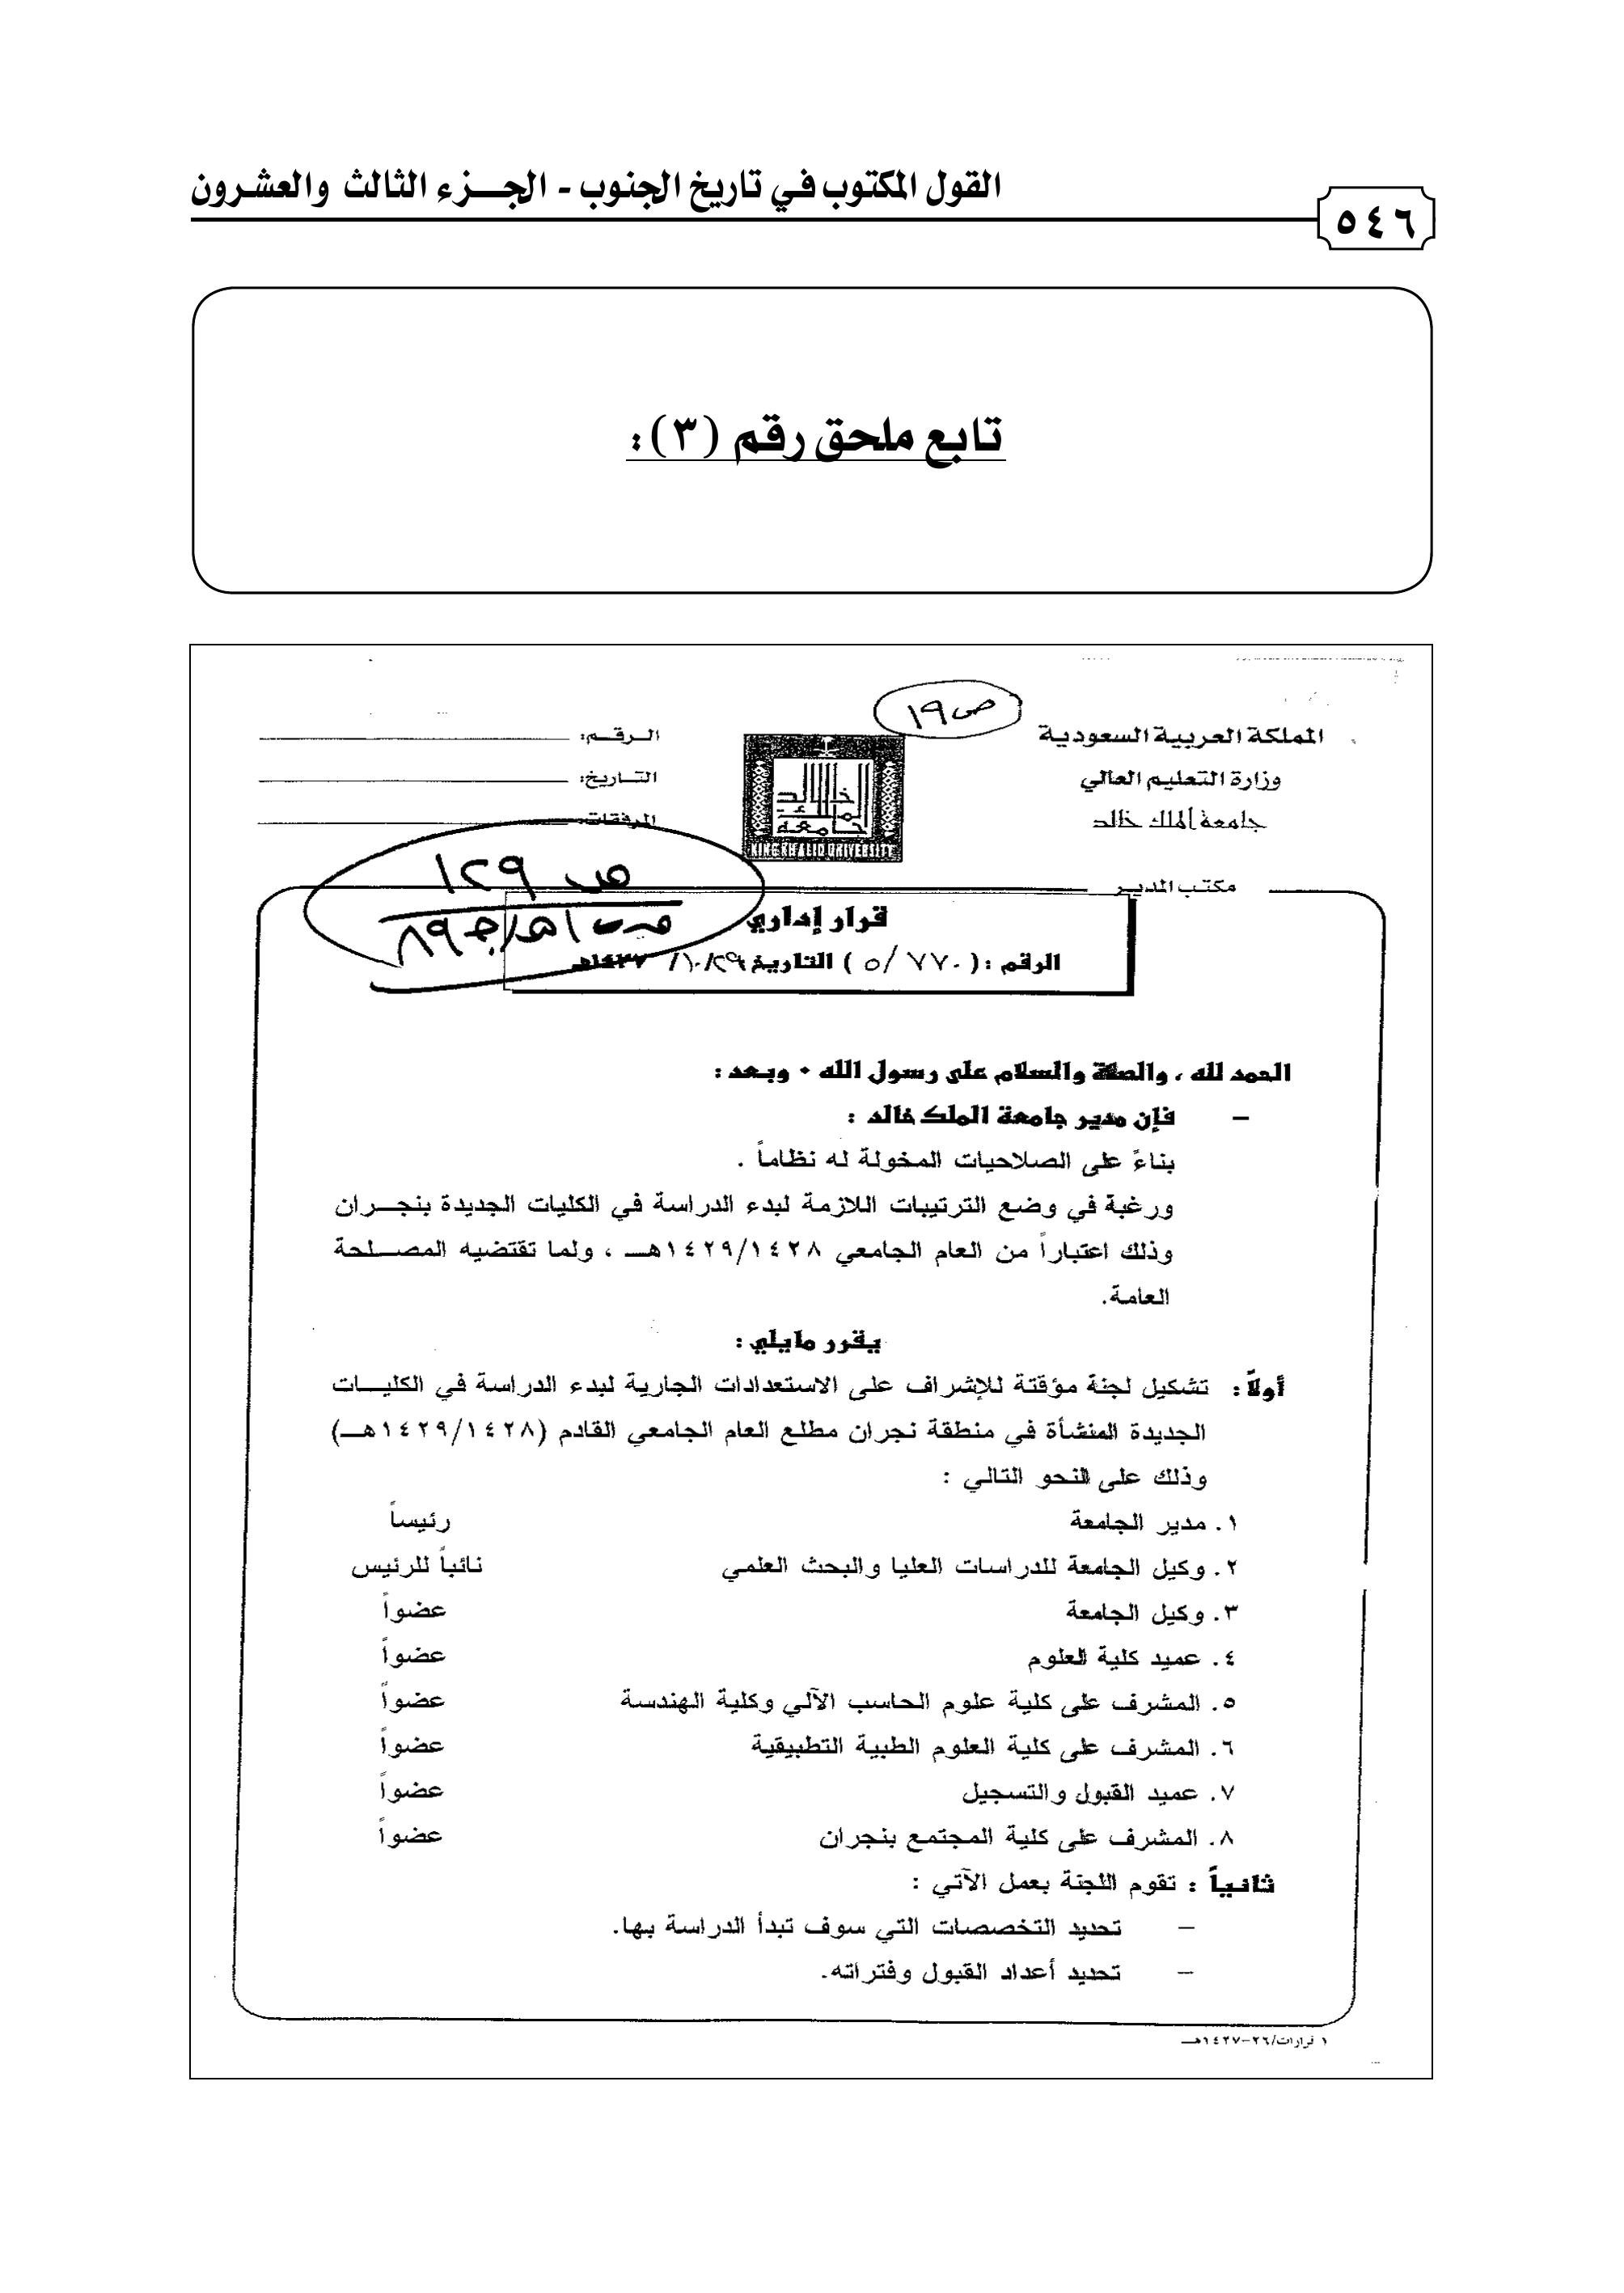 القول المكتوب في تاريخ الجنوب - الجـــزء الثالث والعشرون
٥٤٦
تابع ملحق رقم (٣):
ص ١٩
المملكة العربية السعودية
وزارة التعليم العالي
جامعة الملك خالد
مكتب المدير
KING KHALID UNIVERSITY
الرقـم:
التـاريخ:
المرفقات:
ص ١٢٩
قرار إداري
الرقم : ( ٥/٧٧٠ ) التاريخ ١٠/٢٩/ ١٤٢٧هـ
الحمد لله ، والصلاة والسلام على رسول الله ٠ وبعد :
– فإن مدير جامعة الملك خالد :
بناءً على الصلاحيات المخولة له نظاماً .
ورغبة في وضع الترتيبات اللازمة لبدء الدراسة في الكليات الجديدة بنجـــران
وذلك اعتباراً من العام الجامعي ١٤٢٩/١٤٢٨هـــ ، ولما تقتضيه المصـــلحة
العامة.
يقرر مايلي :
أولاً : تشكيل لجنة مؤقتة للإشراف على الاستعدادات الجارية لبدء الدراسة في الكليـــات
الجديدة المنشأة في منطقة نجران مطلع العام الجامعي القادم (١٤٢٩/١٤٢٨هـــ)
وذلك على النحو التالي :
١. مدير الجامعة رئيساً
٢. وكيل الجامعة للدراسات العليا والبحث العلمي نائباً للرئيس
٣. وكيل الجامعة عضواً
٤. عميد كلية العلوم عضواً
٥. المشرف على كلية علوم الحاسب الآلي وكلية الهندسة عضواً
٦. المشرف على كلية العلوم الطبية التطبيقية عضواً
٧. عميد القبول والتسجيل عضواً
٨. المشرف على كلية المجتمع بنجران عضواً
ثانياً : تقوم اللجنة بعمل الآتي :
– تحديد التخصصات التي سوف تبدأ الدراسة بها.
– تحديد أعداد القبول وفتراته.
١ قرارات/٢٦-١٤٢٧هـــ